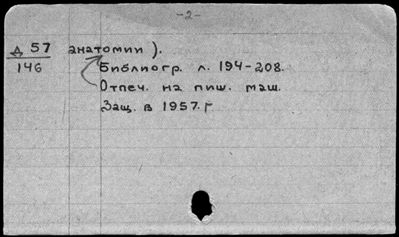 -2-
Д 57 анатомии).
146 Библиогр. л. 194-208.
Отпеч. на пиш. маш.
Защ. в 1957.г